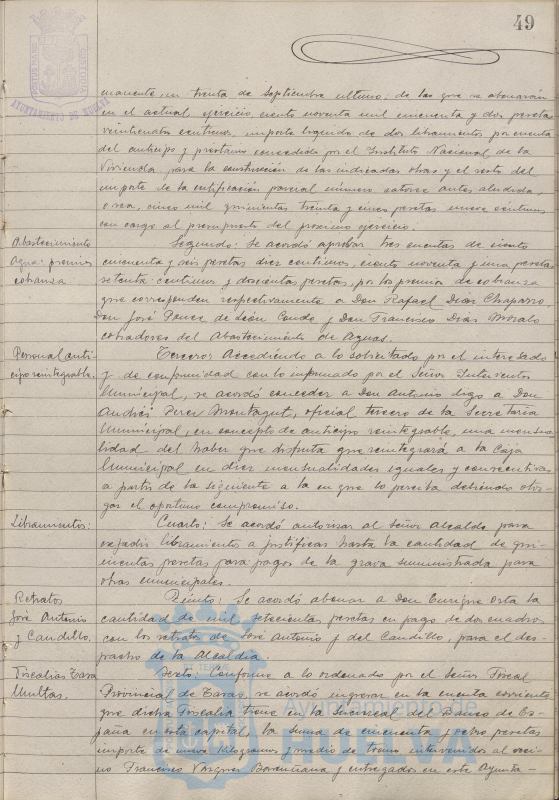 49
AYUNTAMIENTO DE HUELVA
en treinta de Septiembre último; de las que se abonarán
en el actual ejercicio, ciento noventa mil cincuenta y dos pesetas
veintiocho céntimos, importe líquido de dos libramientos por cuenta
del anticipo y préstamo concedido por el Instituto Nacional de la
Vivienda para la construcción de las indicadas obras y el resto del
importe de la certificación parcial número catorce antes aludida,
o sea, cinco mil quinientas treinta y cinco pesetas nueve céntimos,
con cargo al presupuesto del próximo ejercicio.
Abastecimiento
Agua: premios
cobranza
Segundo: Se acordó aprobar tres cuentas de ciento
cincuenta y seis pesetas diez céntimos, ciento noventa y una pesetas
setenta céntimos y doscientas pesetas, por los premios de cobranza
que corresponden respectivamente a Don Rafael Díaz Chaparro,
Don José Ponce de León Conde y Don Francisco Díaz Moralo
cobradores del Abastecimiento de Aguas.
Personal anti-
cipo reintegrable.
Tercero: Accediendo a lo solicitado por el interesado
y de conformidad con lo informado por el Señor Interventor
Municipal, se acordó conceder a Don Antonio digo a Don
Andrés Perez Montagut, oficial tercero de la Secretaría
Municipal, en concepto de anticipo reintegrable, una mensua-
lidad del haber que disfruta que reintegrará a la Caja
Municipal en diez mensualidades iguales y consecutivas
a partir de la siguiente a la en que lo perciba debiendo otor-
gar el oportuno compromiso.
Libramientos:
Cuarto: Se acordó autorizar al Señor Alcalde para
expedir libramientos a justificar hasta la cantidad de qui-
nientas pesetas para pagos de la grava suministrada para
obras municipales.
Retratos
José Antonio
y Caudillo.
Quinto: Se acordó abonar a Don Enrique Orta la
cantidad de mil setecientas pesetas en pago de dos cuadros
con los retratos de José Antonio y del Caudillo, para el des-
pacho de la Alcaldía.
Fiscalía Tasa
Multas.
Sexto: Conforme a lo ordenado por el Señor Fiscal
Provincial de Tasas, se acordó ingresar en la cuenta corriente
que dicha Fiscalía tiene en la Sucursal del Banco de Es-
paña en esta capital, la suma de cincuenta y ocho pesetas
importe de nueve kilogramos y medio de tocino intervenidos al veci-
no Francisco Vazquez y entregados en este Ayunta-
Ayuntamiento de
HUELVA